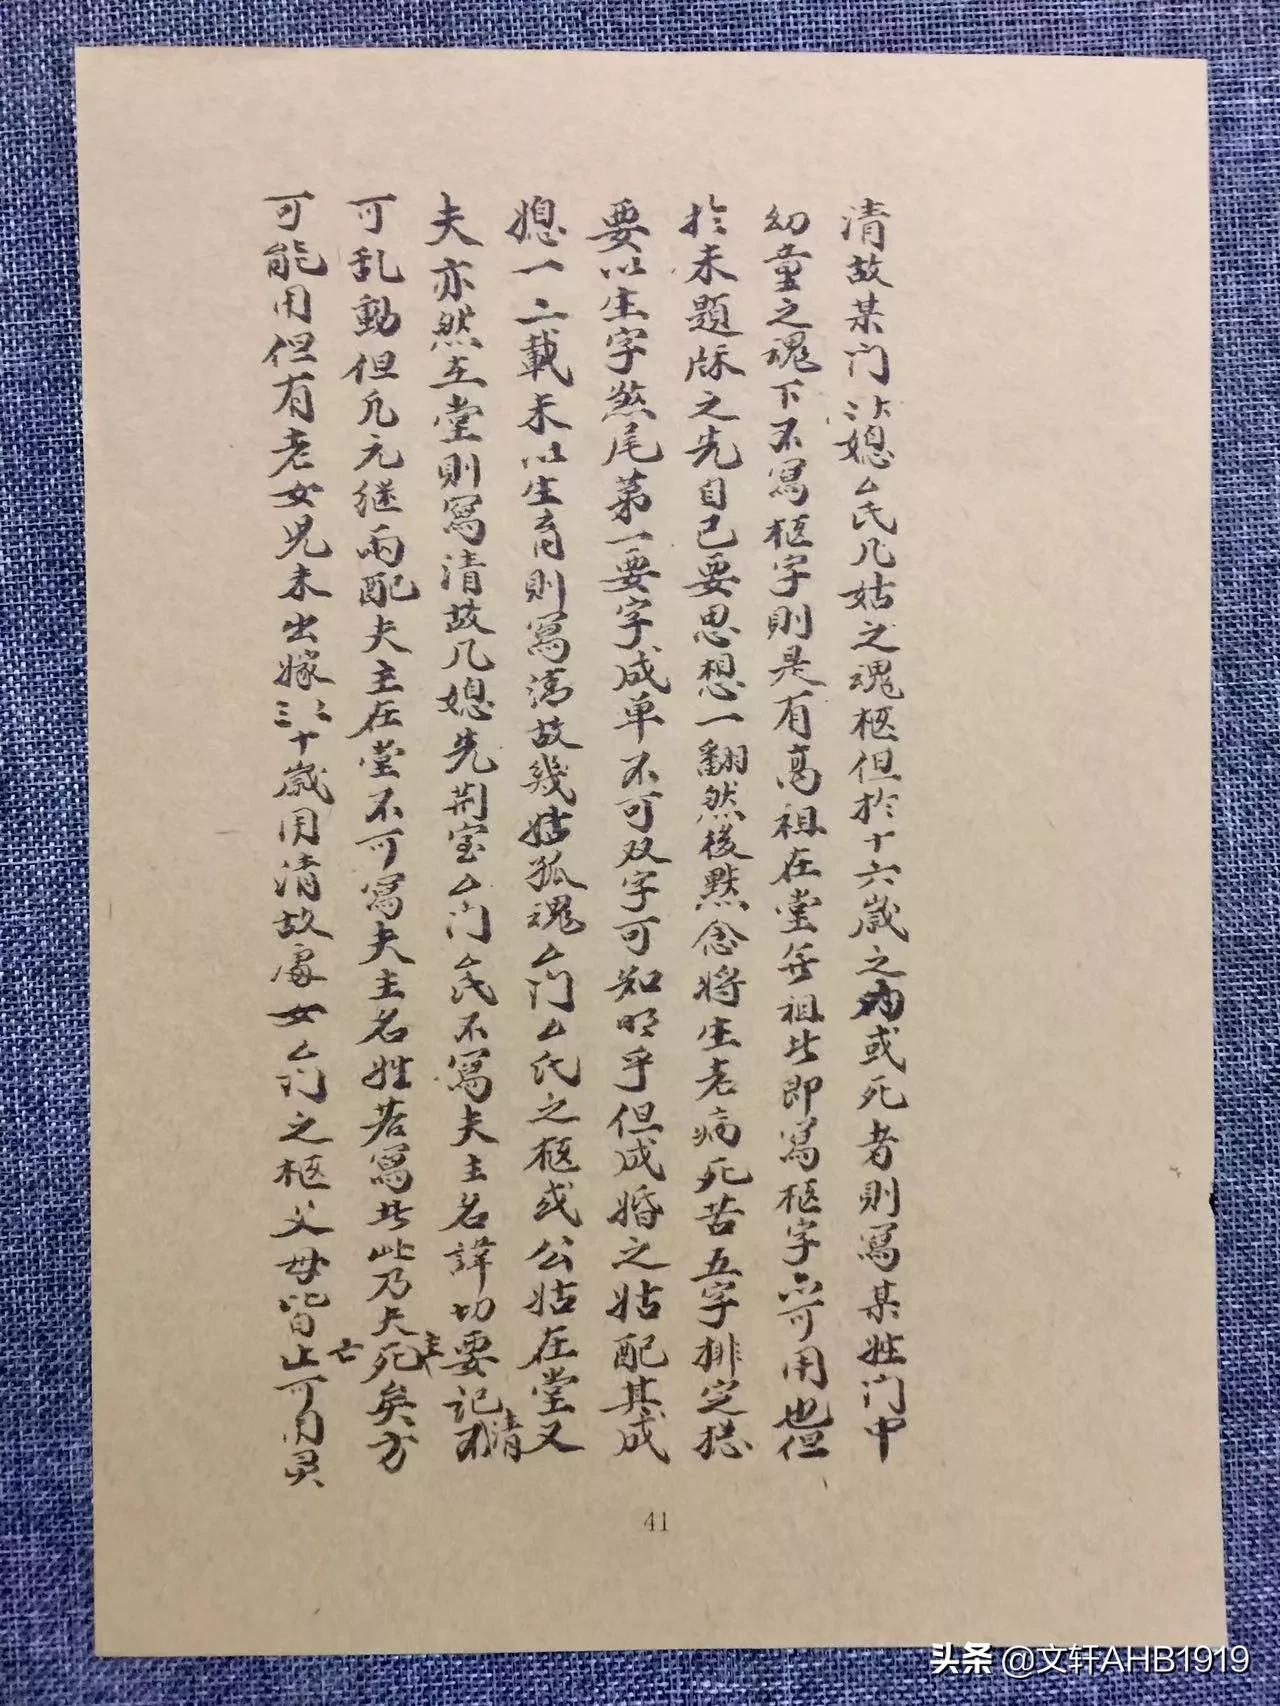 清故某门媳厶氏几姑之魂柩但扵十六歲之内或死者則寫某姓门中
幼童之魂下不寫柩字則是有髙祖在堂無祖此即寫柩字亦可用也但
扵未題牀之先自己要思想一翻然後默念将生老病死苦五字排定揔
要以生字煞尾第一要字成单不可双字可知明乎但成婚之姑配其成
媳一二載未以生育則寫清故幾姑孤魂厶门厶氏之柩或公姑在堂又
夫亦然在堂則寫清故几媳先荆室厶门厶氏不寫夫主名諱切要記清不
可乱動但凡元继両配夫主在堂不可寫夫主名姓若寫此此乃夫主死亡矣方
可能用但有老女児未出嫁三十歲用清故處女厶门之柩父母皆止可用灵
41
头条 @文轩AHB1919